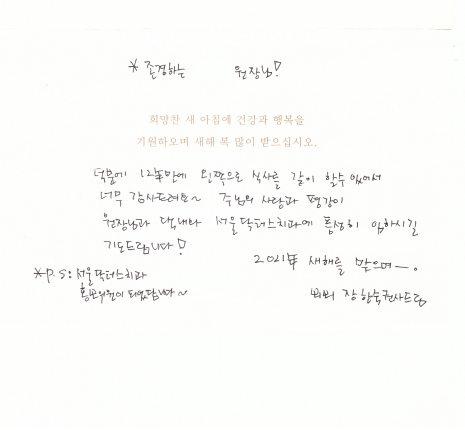 * 존경하는 원장님!
희망찬 새 아침에 건강과 행복을
기원하오며 새해 복 많이 받으십시오.
덕분에 12年만에 왼쪽으로 식사를 같이 할수 있어서
너무 감사드려요~ 주님의 사랑과 평강이
원장님과 댁내와 서울닥터스치과에 풍성히 임하시길
기도드립니다!
2021年 새해를 맞으며—.
*p.s: 서울닥터스치과
홍보위원이 되었답니다~
장한숙권사드림